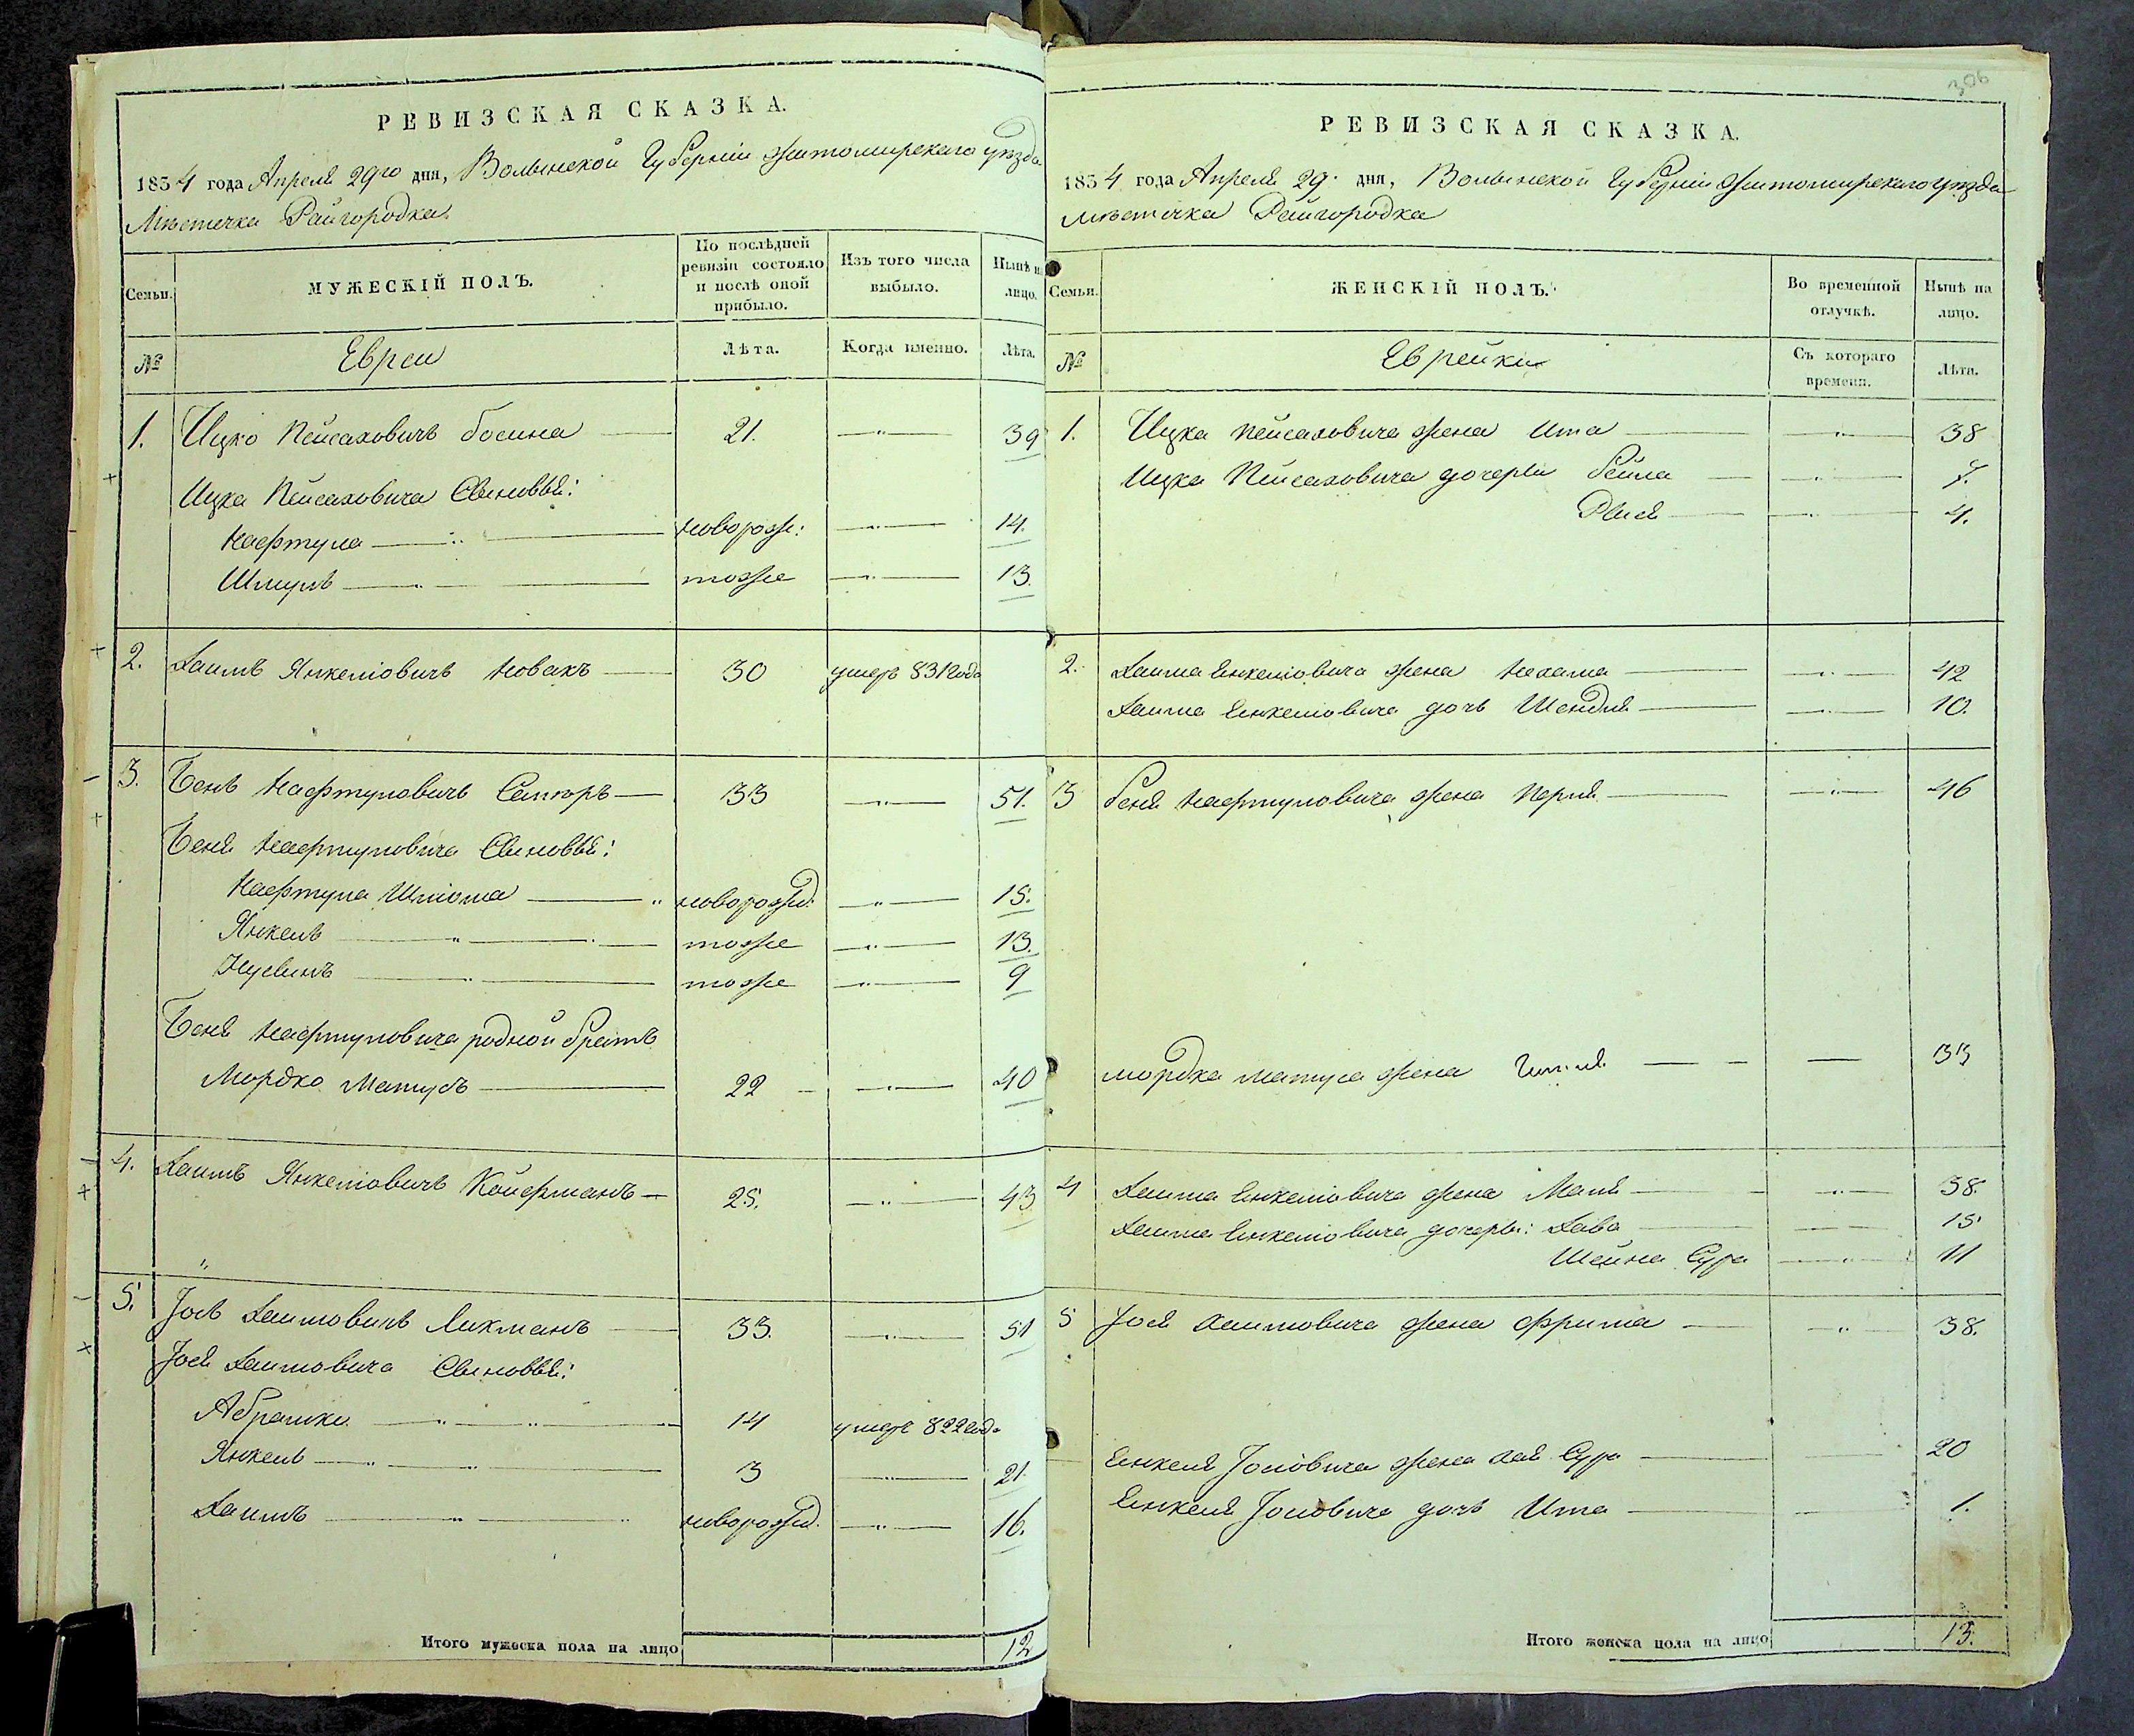 РЕВИЗСКАЯ СКАЗКА.
1834 года Апреля 29го дня, Волынской Губерніи Житомирскаго уѣзда
Мѣстечка Райгородка
Семьи.
МУЖЕСКІЙ ПОЛЪ.
По послѣдней ревизіи состояло и послѣ оной прибыло.
Изъ того числа выбыло.
Нынѣ на лицо.
№
Евреи
Лѣта.
Когда именно.
Лѣта.
1. Ицко Пейсаховичъ Босина 21. 39
Ицка Пейсаховича Сыновья:
Нафтула новорож: 14.
Шмуль тоже 13.
2. Хаимъ Янкеліовичъ Новакъ 30 умеръ 831 года
3. Бень Нафтуловичъ Сапторъ 33 51.
Беня Нафтуловича Сыновья:
Нафтула Шліома новорожд: 15.
Янкель тоже 13.
Нусынъ тоже 9
Беня Нафтуловича родной братъ
Мордко Матусъ 22 40
4. Хаимъ Янкеліовичъ Койфманъ 25. 43
5. Іось Хаимовичъ Ликманъ 33. 51
Іося Хаимовича Сыновья:
Абрамко 14 умеръ 822 года
Янкель 3 21.
Хаимъ новорожд. 16.
Итого мужеска пола на лицо 12
306
РЕВИЗСКАЯ СКАЗКА.
1834 года Апреля 29. дня, Волынской Губерніи Житомирскаго уѣзда
мѣстечка Райгородка
Семьи.
ЖЕНСКІЙ ПОЛЪ.
Во временной отлучкѣ.
Нынѣ на лицо.
№
Еврейки
Съ котораго времени.
Лѣта.
1. Ицка Пейсаховича жена Ита 38
Ицка Пейсаховича дочери Бейла 7.
Рыся 4.
2. Хаима Енкеліовича жена Нехама 42
Хаима Енкеліовича дочь Шендля 10.
3 Беня Нафтуловича жена Перля 46
мордка матуса жена 33
4 Хаима Енкеліовича жена Маня 38.
Хаима Енкеліовича дочеры: Хава 15.
Шейна Сура 11
5 Іося Хаимовича жена Фрима 38.
Енкеля Іосіовича жена Хая Сура 20
Енкеля Іосіовича дочь Ита 1.
Итого женска пола на лицо 13.